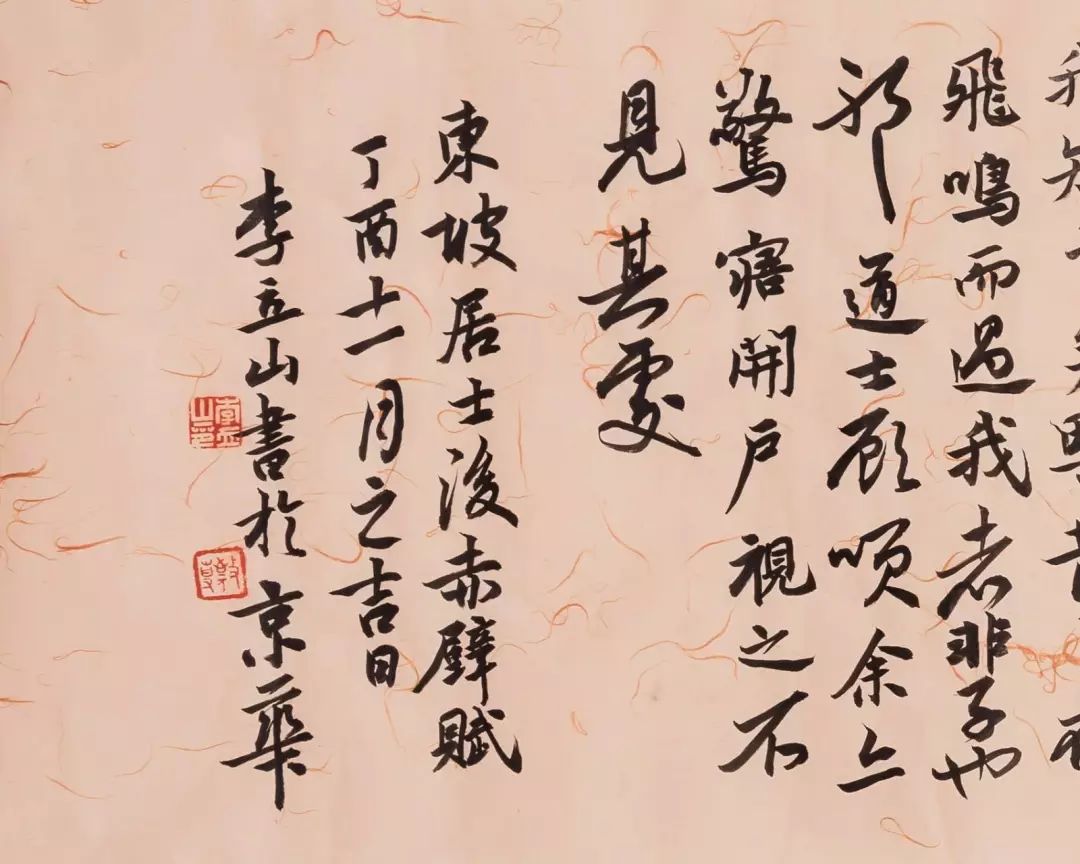 飛鳴而過我者非子也
邪道士顧咲余亦
驚寤開戶視之不
見其處
東坡居士後赤壁賦
丁酉十一月之吉日
李立山書於京華
李立山印